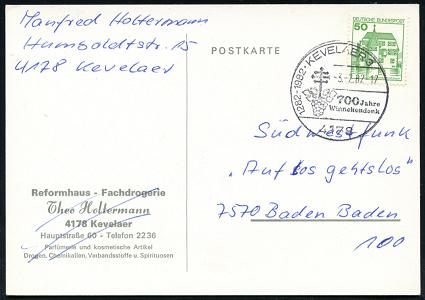 Manfred Holtermann
Humboldtstr. 15
4178 Kevelaer
POSTKARTE
50
DEUTSCHE BUNDESPOST
1282-1982 · KEVELAER 3
-3.-7.82.-17
700 Jahre
Winnekendonk
4178
Südwestfunk
„Auf Los gehts los"
7570 Baden Baden
100
Reformhaus - Fachdrogerie
Theo Holtermann
4178 Kevelaer
Hauptstraße 60 - Telefon 2236
Parfümerie und kosmetische Artikel
Drogen, Chemikalien, Verbandsstoffe u. Spirituosen